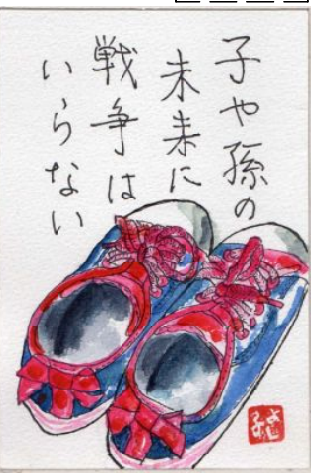 子や孫の
未来に
戦争は
いらない